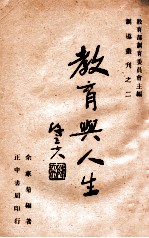 教育部訓育委員會主編
訓導叢刊之二
教育與人生
余家菊編著
正中書局印行